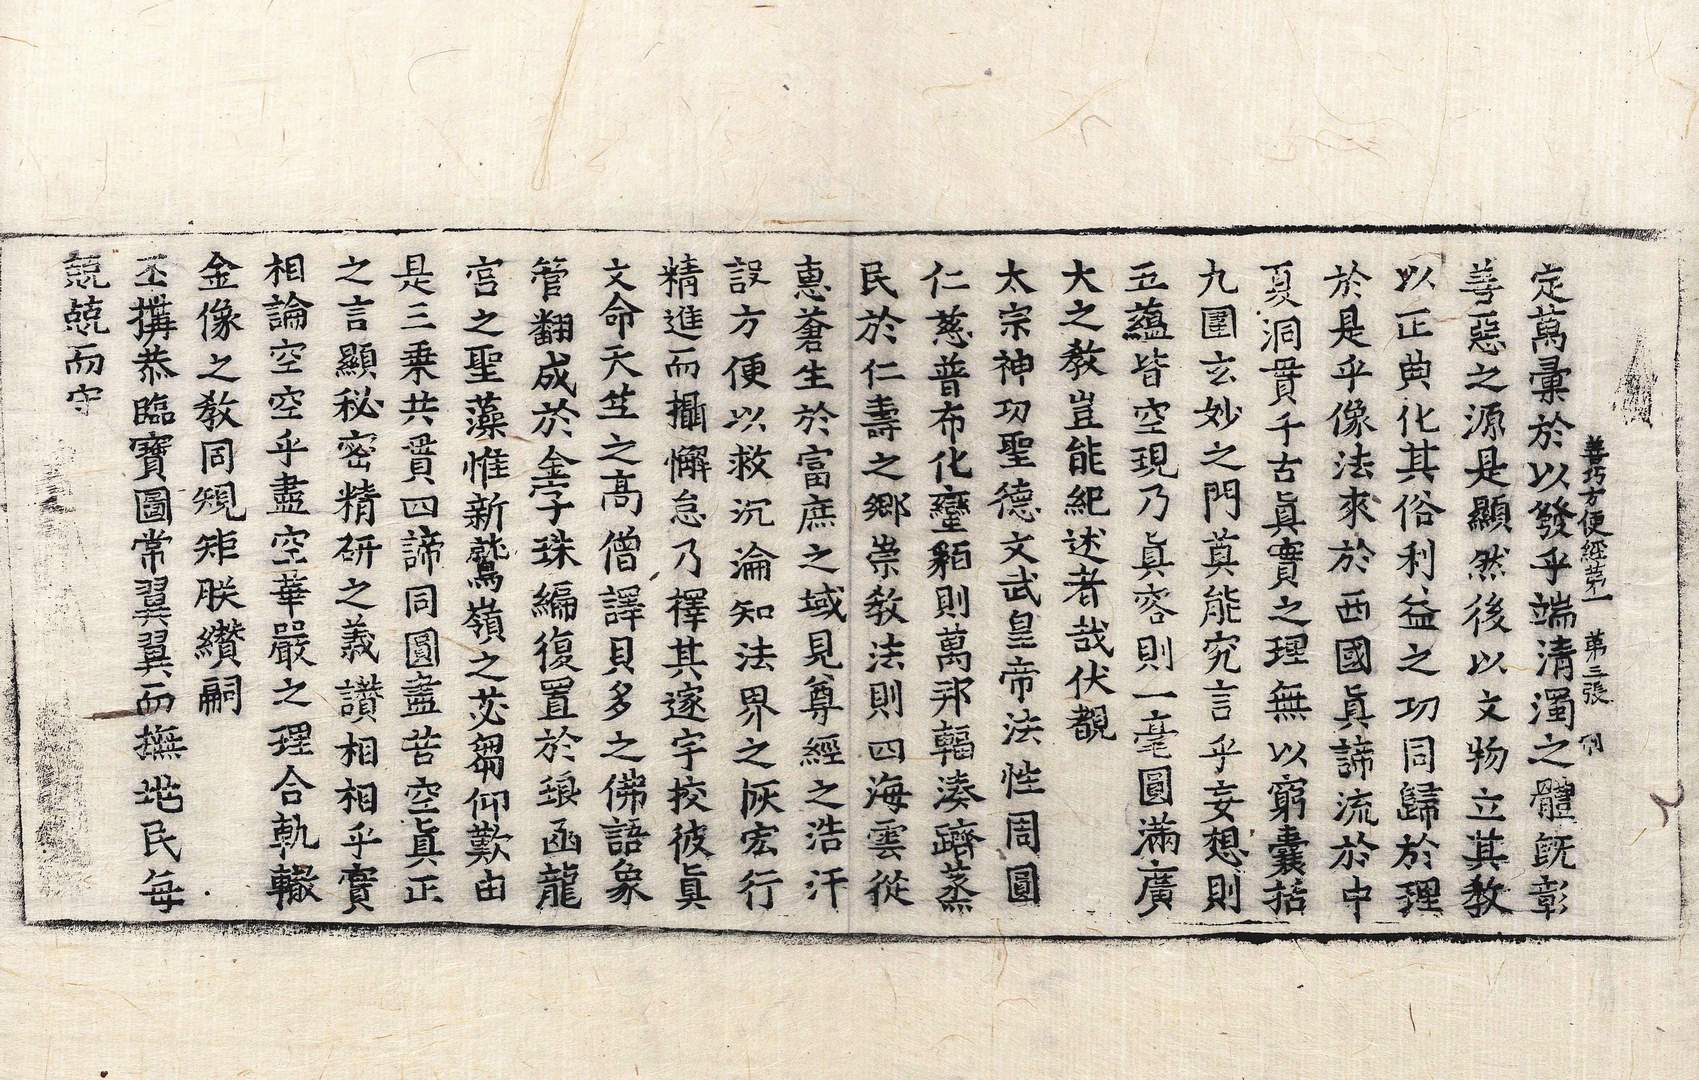 善巧方便經第一 第三張 刑
定萬彙於以發乎端清濁之體旣彰
善惡之源是顯然後以文物立其敎
以正典化其俗利益之功同歸於理
於是乎像法來於西國眞諦流於中
夏洞貫千古眞實之理無以窮囊括
九圍玄妙之門莫能究言乎妄想則
五蘊皆空現乃眞容則一毫圓滿廣
大之敎豈能紀述者哉伏覩
太宗神功聖德文武皇帝法性周圓
仁慈普布化蠻貊則萬邦輻湊躋蒸
民於仁壽之鄕崇敎法則四海雲從
惠蒼生於富庶之域見尊經之浩汗
設方便以救沉淪知法界之恢宏行
精進而攝懈怠乃擇其邃宇挍彼眞
文命天竺之高僧譯貝多之佛語象
管翻成於金字珠編復置於琅函龍
宮之聖藻惟新鷲嶺之苾芻仰歎由
是三乘共貫四諦同圓盡苦空眞正
之言顯秘密精硏之義讚相相乎實
相論空空乎盡空華嚴之理合軌轍
金像之敎同規矩朕纘嗣
丕搆恭臨寶圖常翼翼而撫地民每
兢兢而守